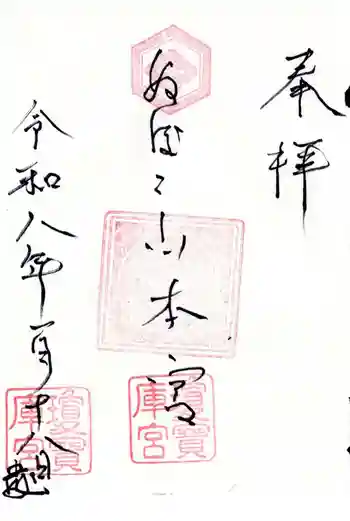 奉拝
ぬほこ山本宮
瓊寶庫宮
令和八年一月十八日
瓊寶庫宮